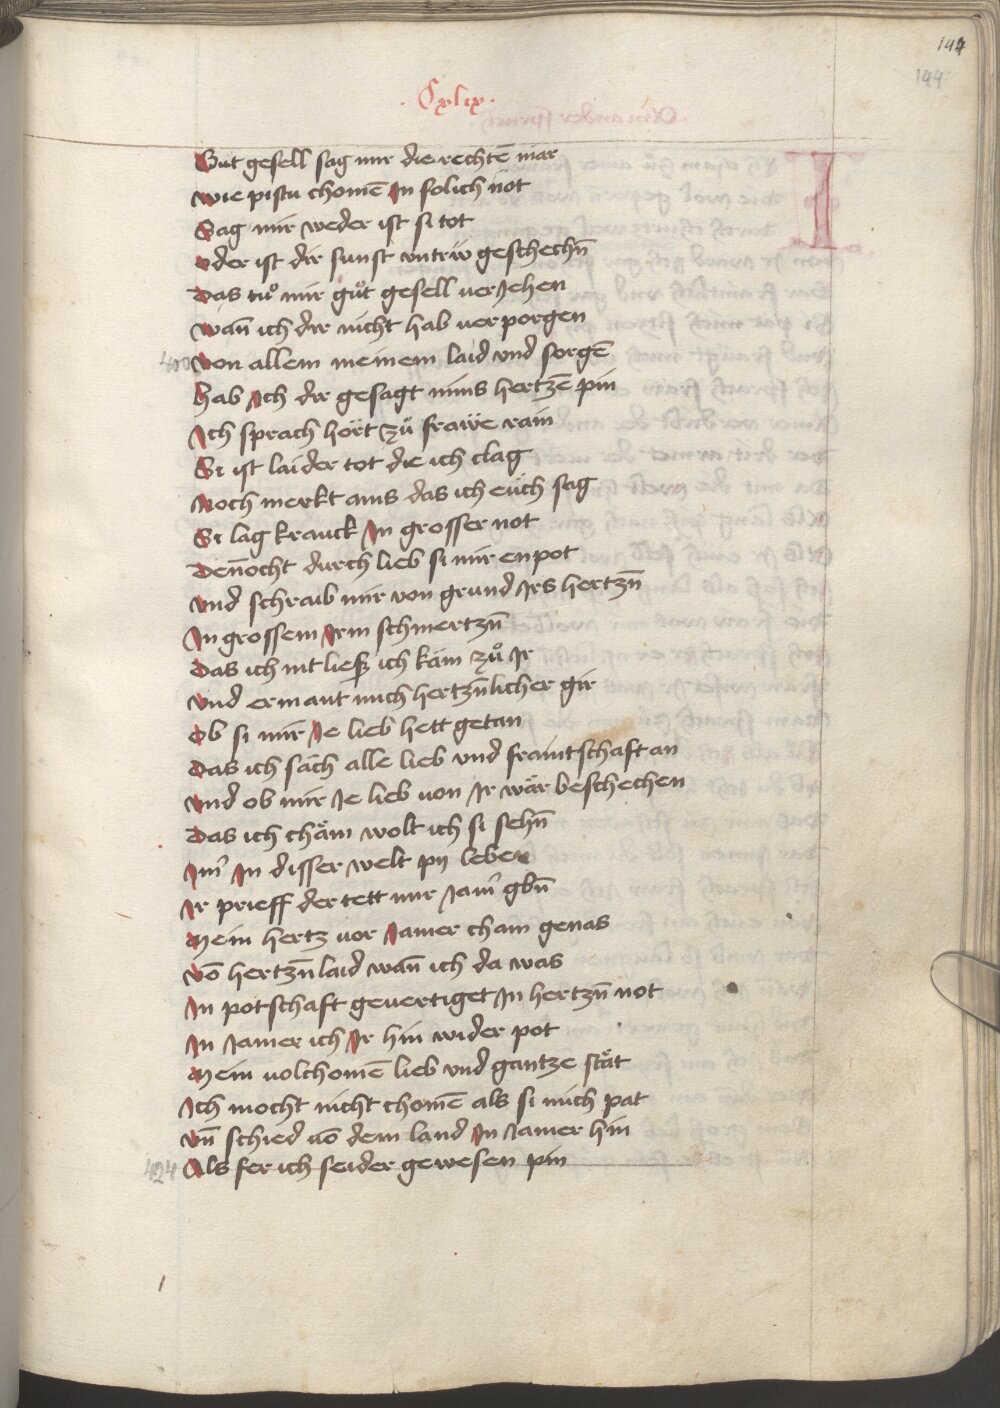 144
144
· Cxlix ·
Gut gesell sag mir die rechtē mar
wie pistu chomē Jn solich not
Sag mir weder ist si tot
oder ist dir sunst vntrw̋ geschechn̄
Das tuͦ mir guͤt gesell veriehen
wan̄ ich dir nicht hab verporgen
400 Von allem meinem laid vnd sorgē
hab Ich dir gesagt mins hertzē pin
Ich sprach hört zuͦ fraẅe rain
Si ist laider tot die ich clag
Noch merkt ains das ich eüch sag
Si lag kranck Jn grosser not
Den̄ocht durch lieb si mir enpot
vnd schraib mir von grund Jrs hertzn̄
Jn grossem Jrm schmertzn̄
Das ich nit liesz ich käm zuͦ Jr
vnd ermant mich hertzn̄licher gir
Ob si mir Je lieb hett getan
Das ich säch alle lieb vnd fraintschaft an
vnd ob mir Je lieb von Jr wär beschechen
Das ich chäm wolt ich si sehn̄
Jm̄ Jn disser welt py leben
Jr prieff der tett mir Jam̄ gbn̄
Mein hertz vor Jamer cham genas
võ hertzn̄ laid wan̄ ich da was
Jn potschaft geuertiget Jn hertzn̄ not
Jn Jamer ich Jr hin wider pot
Mein volchomē lieb vnd gantze stät
Ich mocht nicht chomē als si mich pat
vn̄ schied võ dem land Jn Jamer hin
424 Als fer ich seider gewesen pin